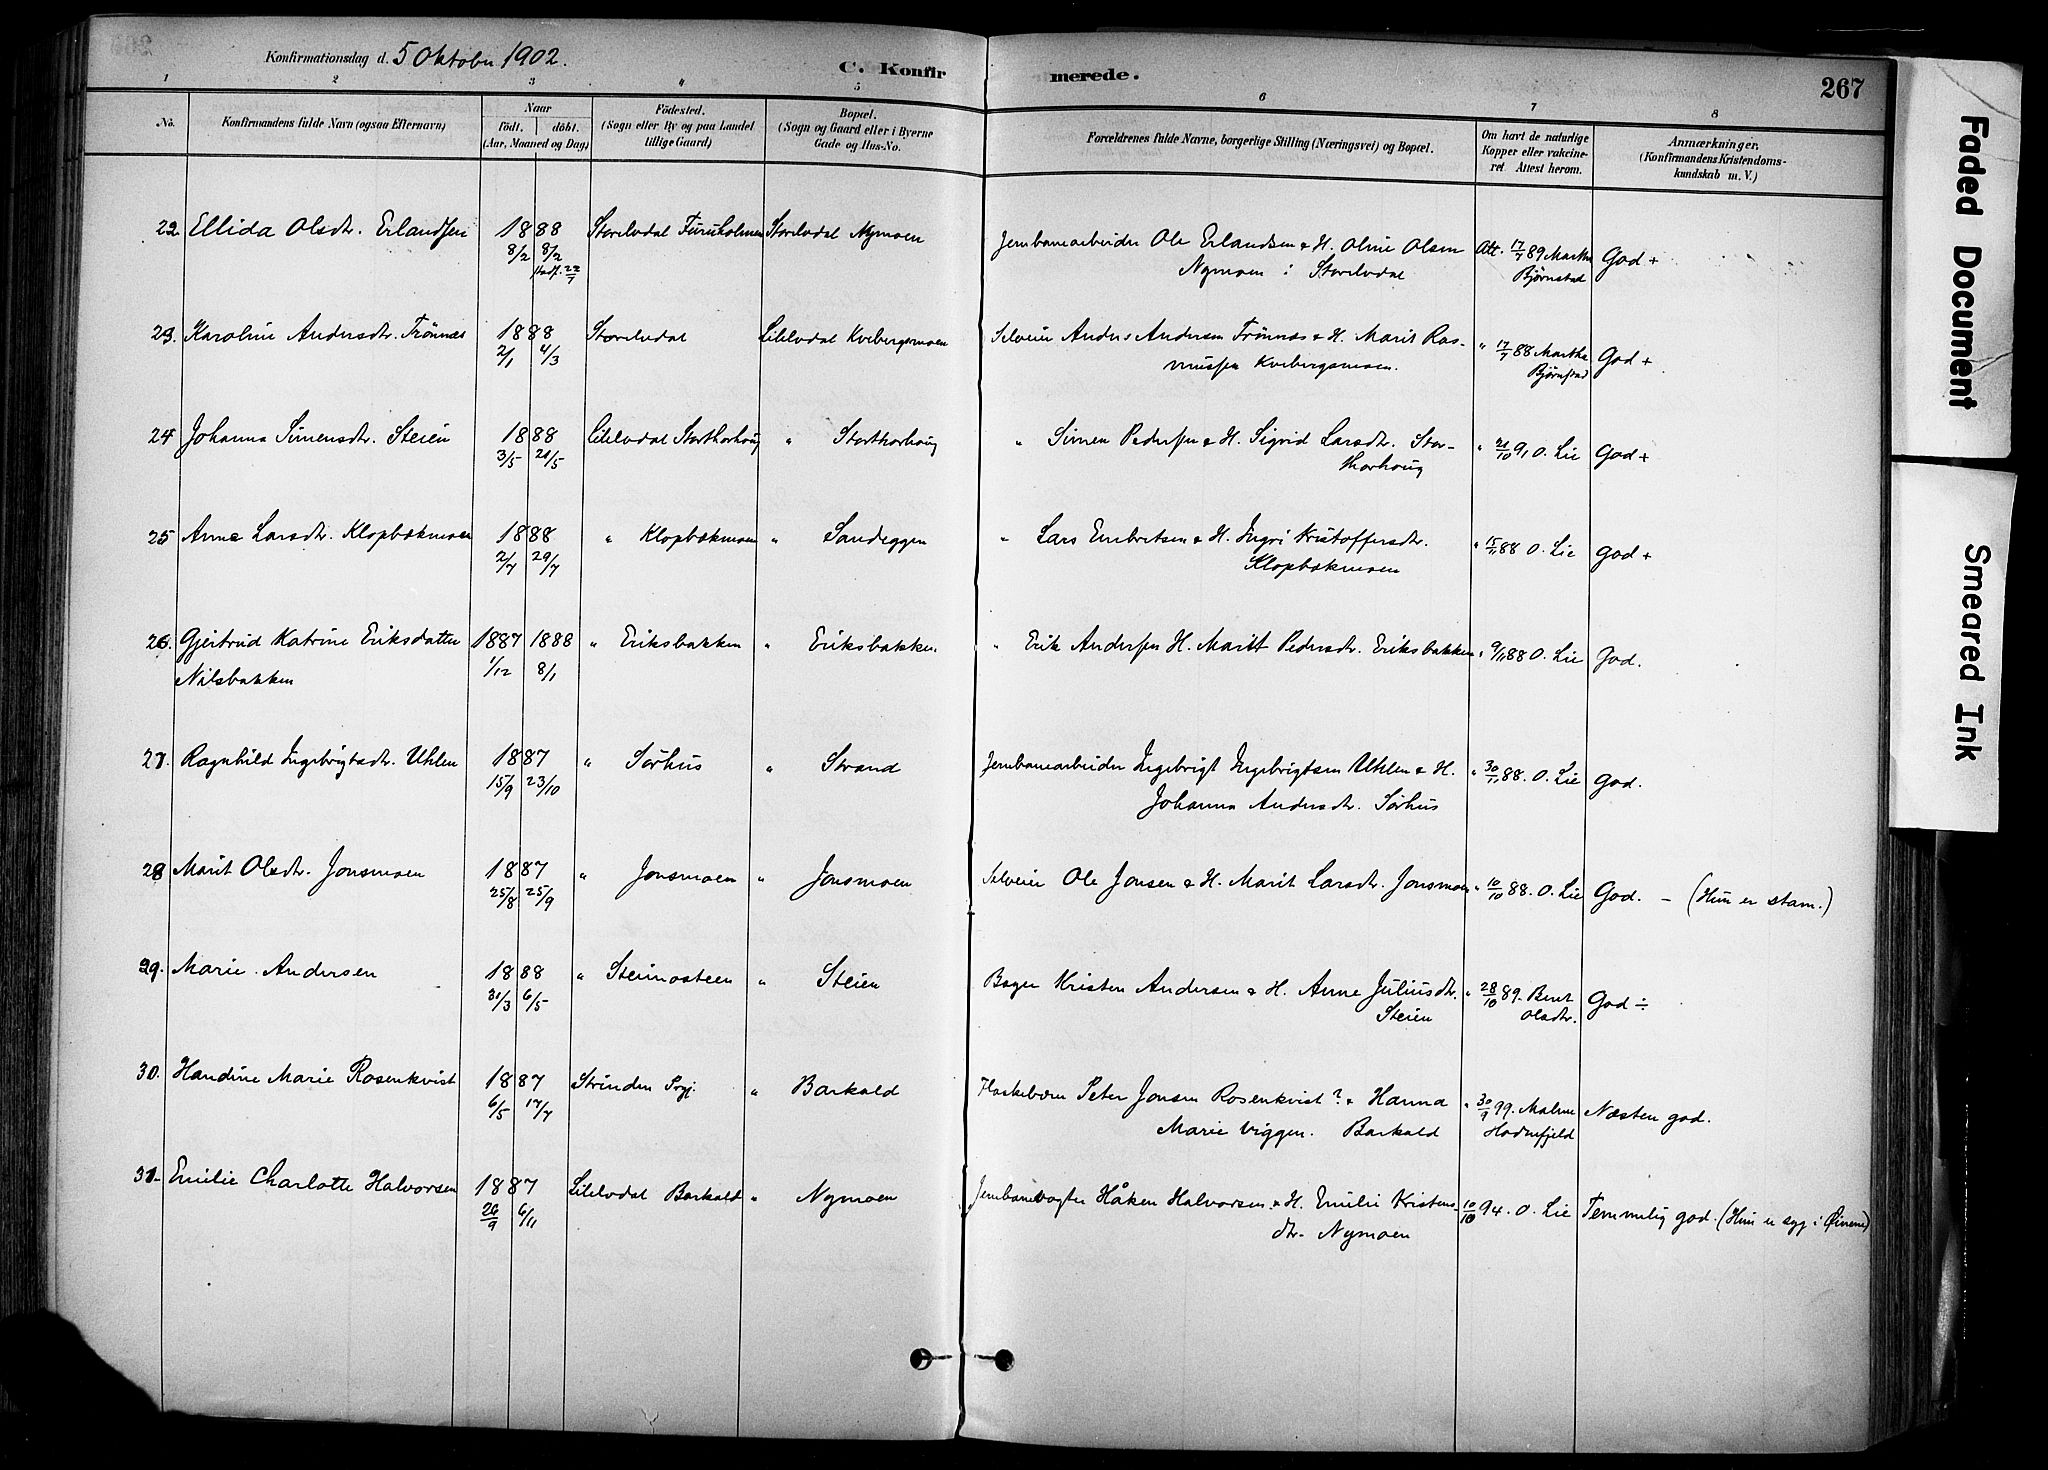 Konfirmationsdag d. 5 Oktober 1902.
C. Konfirmerede.
267
1 2 3 " 5 6 7 8
No. Konfirmandens fulde Navn (ogsaa Efternavn) Naar födt. döbt. (Aar, Maaned og Dag) Födested. (Sogn eller By og paa Landet tillige Gaard.) Bopæl. (Sogn og Gaard eller i Byerne Gade og Hus-No. Forældrenes fulde Navne, borgerlige Stilling (Næringsvei) og Bopæl. Om havt de naturlige Kopper eller vakcineret Attest herom. Anmærkninger. (Konfirmandens Kristendomskundskab m. V.)
22. Ellida Olsdtr. Erlandsen 1888 8/2 8/2 stadf. 22/7 Storelvdal Furuholmen Storelvdal Nymoen Jernbanearbeider Ole Erlandsen & H. Oline Olsen Att. 17/7 89 Marthe God +
Nymoen i Storelvdal Bjørnstad
23. Karoline Andersdtr. Trønnes 1888 2/1 4/3 Storelvdal Lilelvdal Kvebergsmoen Selveier Anders Andersen Trønnes & H. Marit Ras- " 17/7 88 Marthe God +
mussen Kvebergsmoen. Bjørnstad
24 Johanna Simensdtr. Steien 1888 3/5 21/5 Lilelvdal Storthorhoug " Storthorhoug " Simen Pedersen & H. Sigrid Larsdtr. Stor- " 21/10 91 O. Lie God +
thorhoug
25 Anne Larsdtr. Klopbækmoen 1888 2/7 29/7 " Klopbækmoen " Sandeggen " Lars Embretsen & H. Ingri Kristoffersdtr. " 15/11 88 O. Lie God +
Klopbækmoen
26. Gjertrud Katrine Eriksdatter 1887 1/12 1888 8/1 " Eriksbakken " Eriksbakken. " Erik Andersen H. Maritt Pedersdtr. Eriksbakken " 9/11 88 O. Lie God.
Nilsbakken
27. Ragnhild Ingebrigtsdtr. Uhlen 1887 15/9 23/10 " Sørhus " Strand Jernbanearbeider Ingebrigt Ingebrigtsen Uhlen & H. " 30/11 88. O. Lie God.
Johanna Andersdtr. Sørhus
28 Marit Olsdtr. Jonsmoen 1887 25/8 25/9 " Jonsmoen " Jonsmoen Selveier Ole Jonsen & H. Marit Larsdtr. Jonsmoen " 10/10 88. O. Lie God. - (Hun er stam.)
29. Marie Andersen 1888 31/3 6/5 " Steimosteen " Steien Bager Kristen Andersen & H. Anne Juliusdtr. " 28/10 89. Berit God ÷
Steien Olsdtr.
30. Handine Marie Rosenkvist 1887 6/5 17/7 Strinden Prgj. " Barkald Peter Jonsen Rosenkvist? & Hanna " 30/9 99. Malene Næsten god.
Marie Viggen. Barkald
31. Emilie Charlotte Halvorsen 1887 26/9 6/11 Lilelvdal Barkald " Nymoen Jernbanevogter Håken Halvorsen & H. Emilie Kristens- " 10/10 94. O. Lie Temmelig god. (Hun er syg i Øinene)
dtr. Nymoen
Faded Document
Smeared Ink